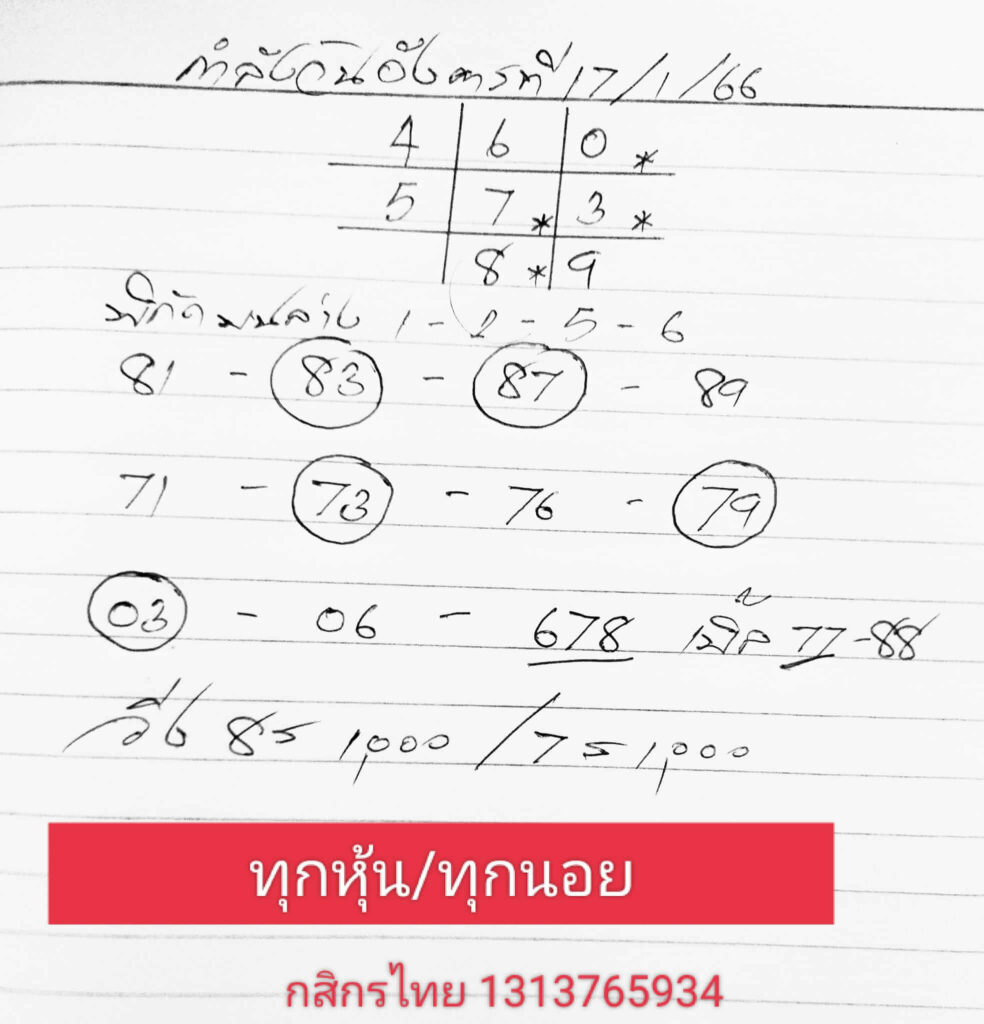 กำลังวันอังคารที่ 17/1/66
4 6 0 *
5 7 * 3 *
8 * 9
พิกัดบนล่าง 1 - 2 - 5 - 6
81 - 83 - 87 - 89
71 - 73 - 76 - 79
03 - 06 - 678 เบิ้ล 77-88
วิ่ง 8 ร 1,000 / 7 ร 1,000
ทุกหุ้น/ทุกนอย
กสิกรไทย 1313765934